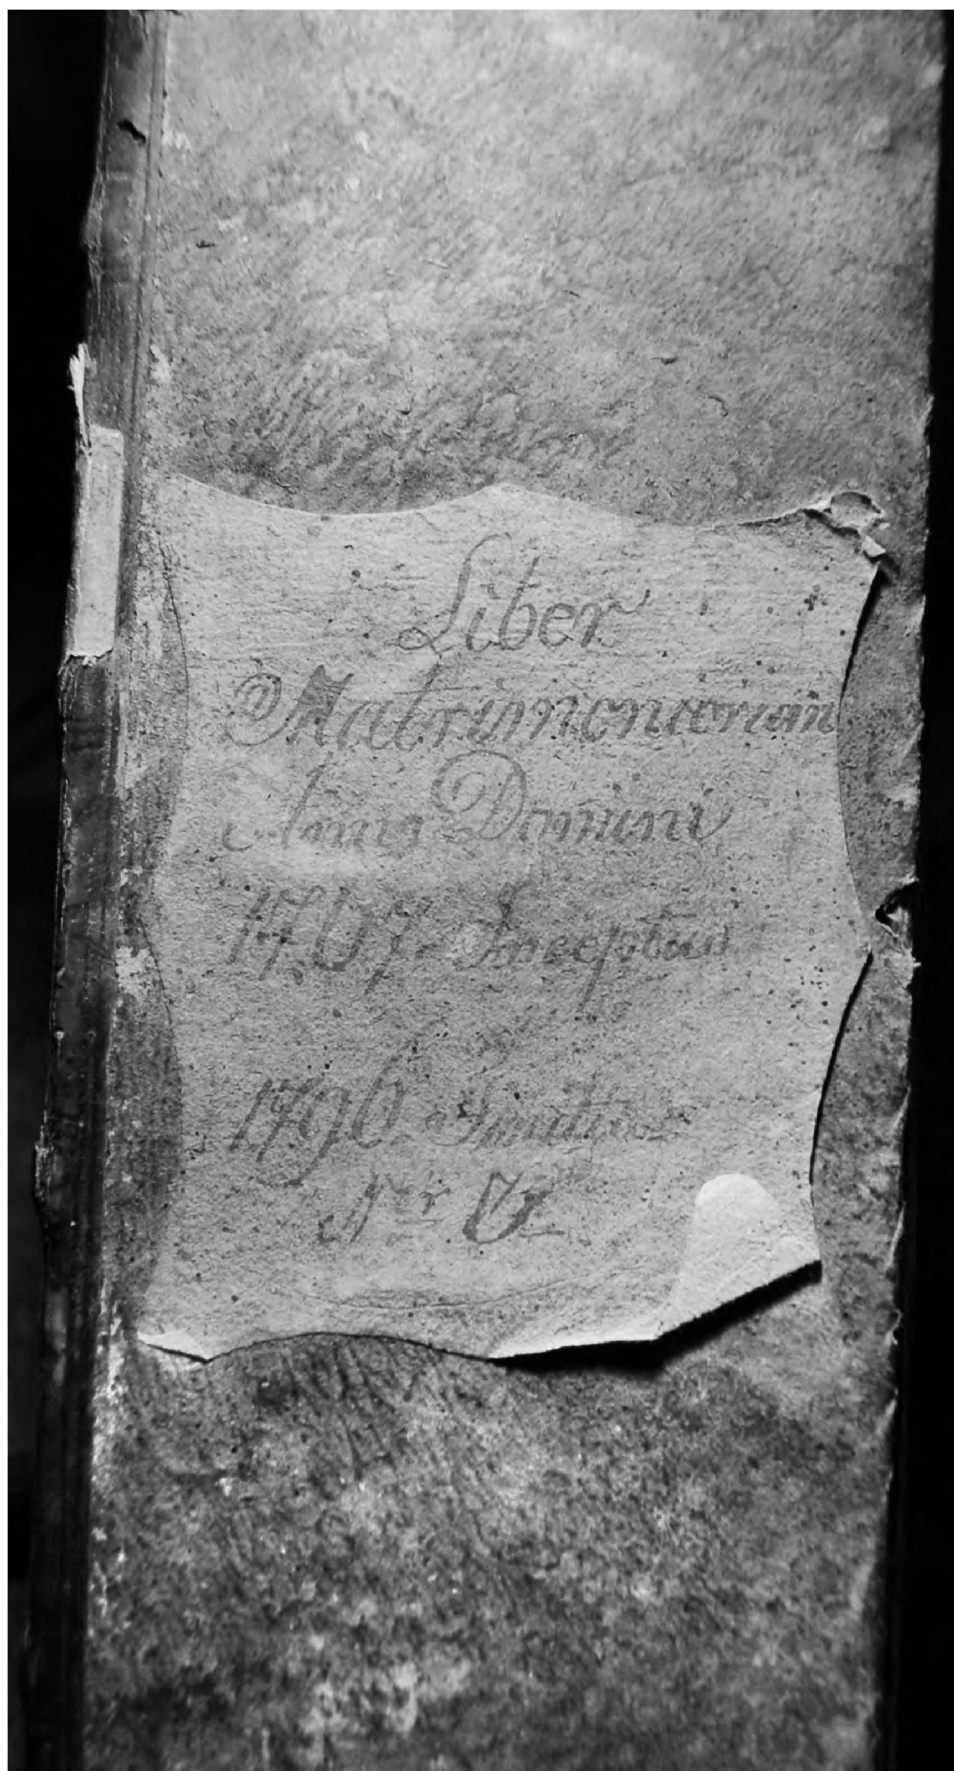 Liber
Matrimoniorum
Annis Domini
1767. Inceptus
1796. Finitus
Ner V